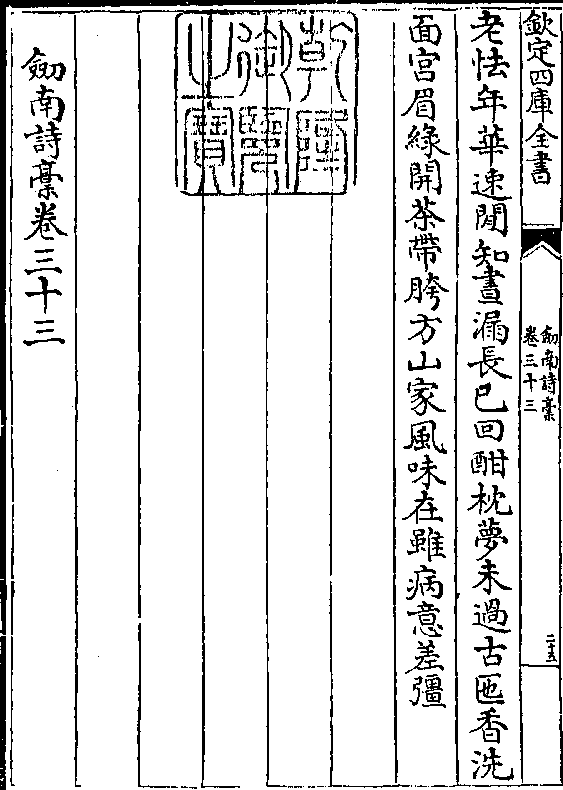 欽定四庫全書
劔南詩藁
卷三十三
二十五
老怯年華速閒知晝漏長已回酣枕夢未過古匜香洗
面宮眉綠開茶帶胯方山家風味在雖病意差彊
乾隆
御覽
之寶
劔南詩藁卷三十三